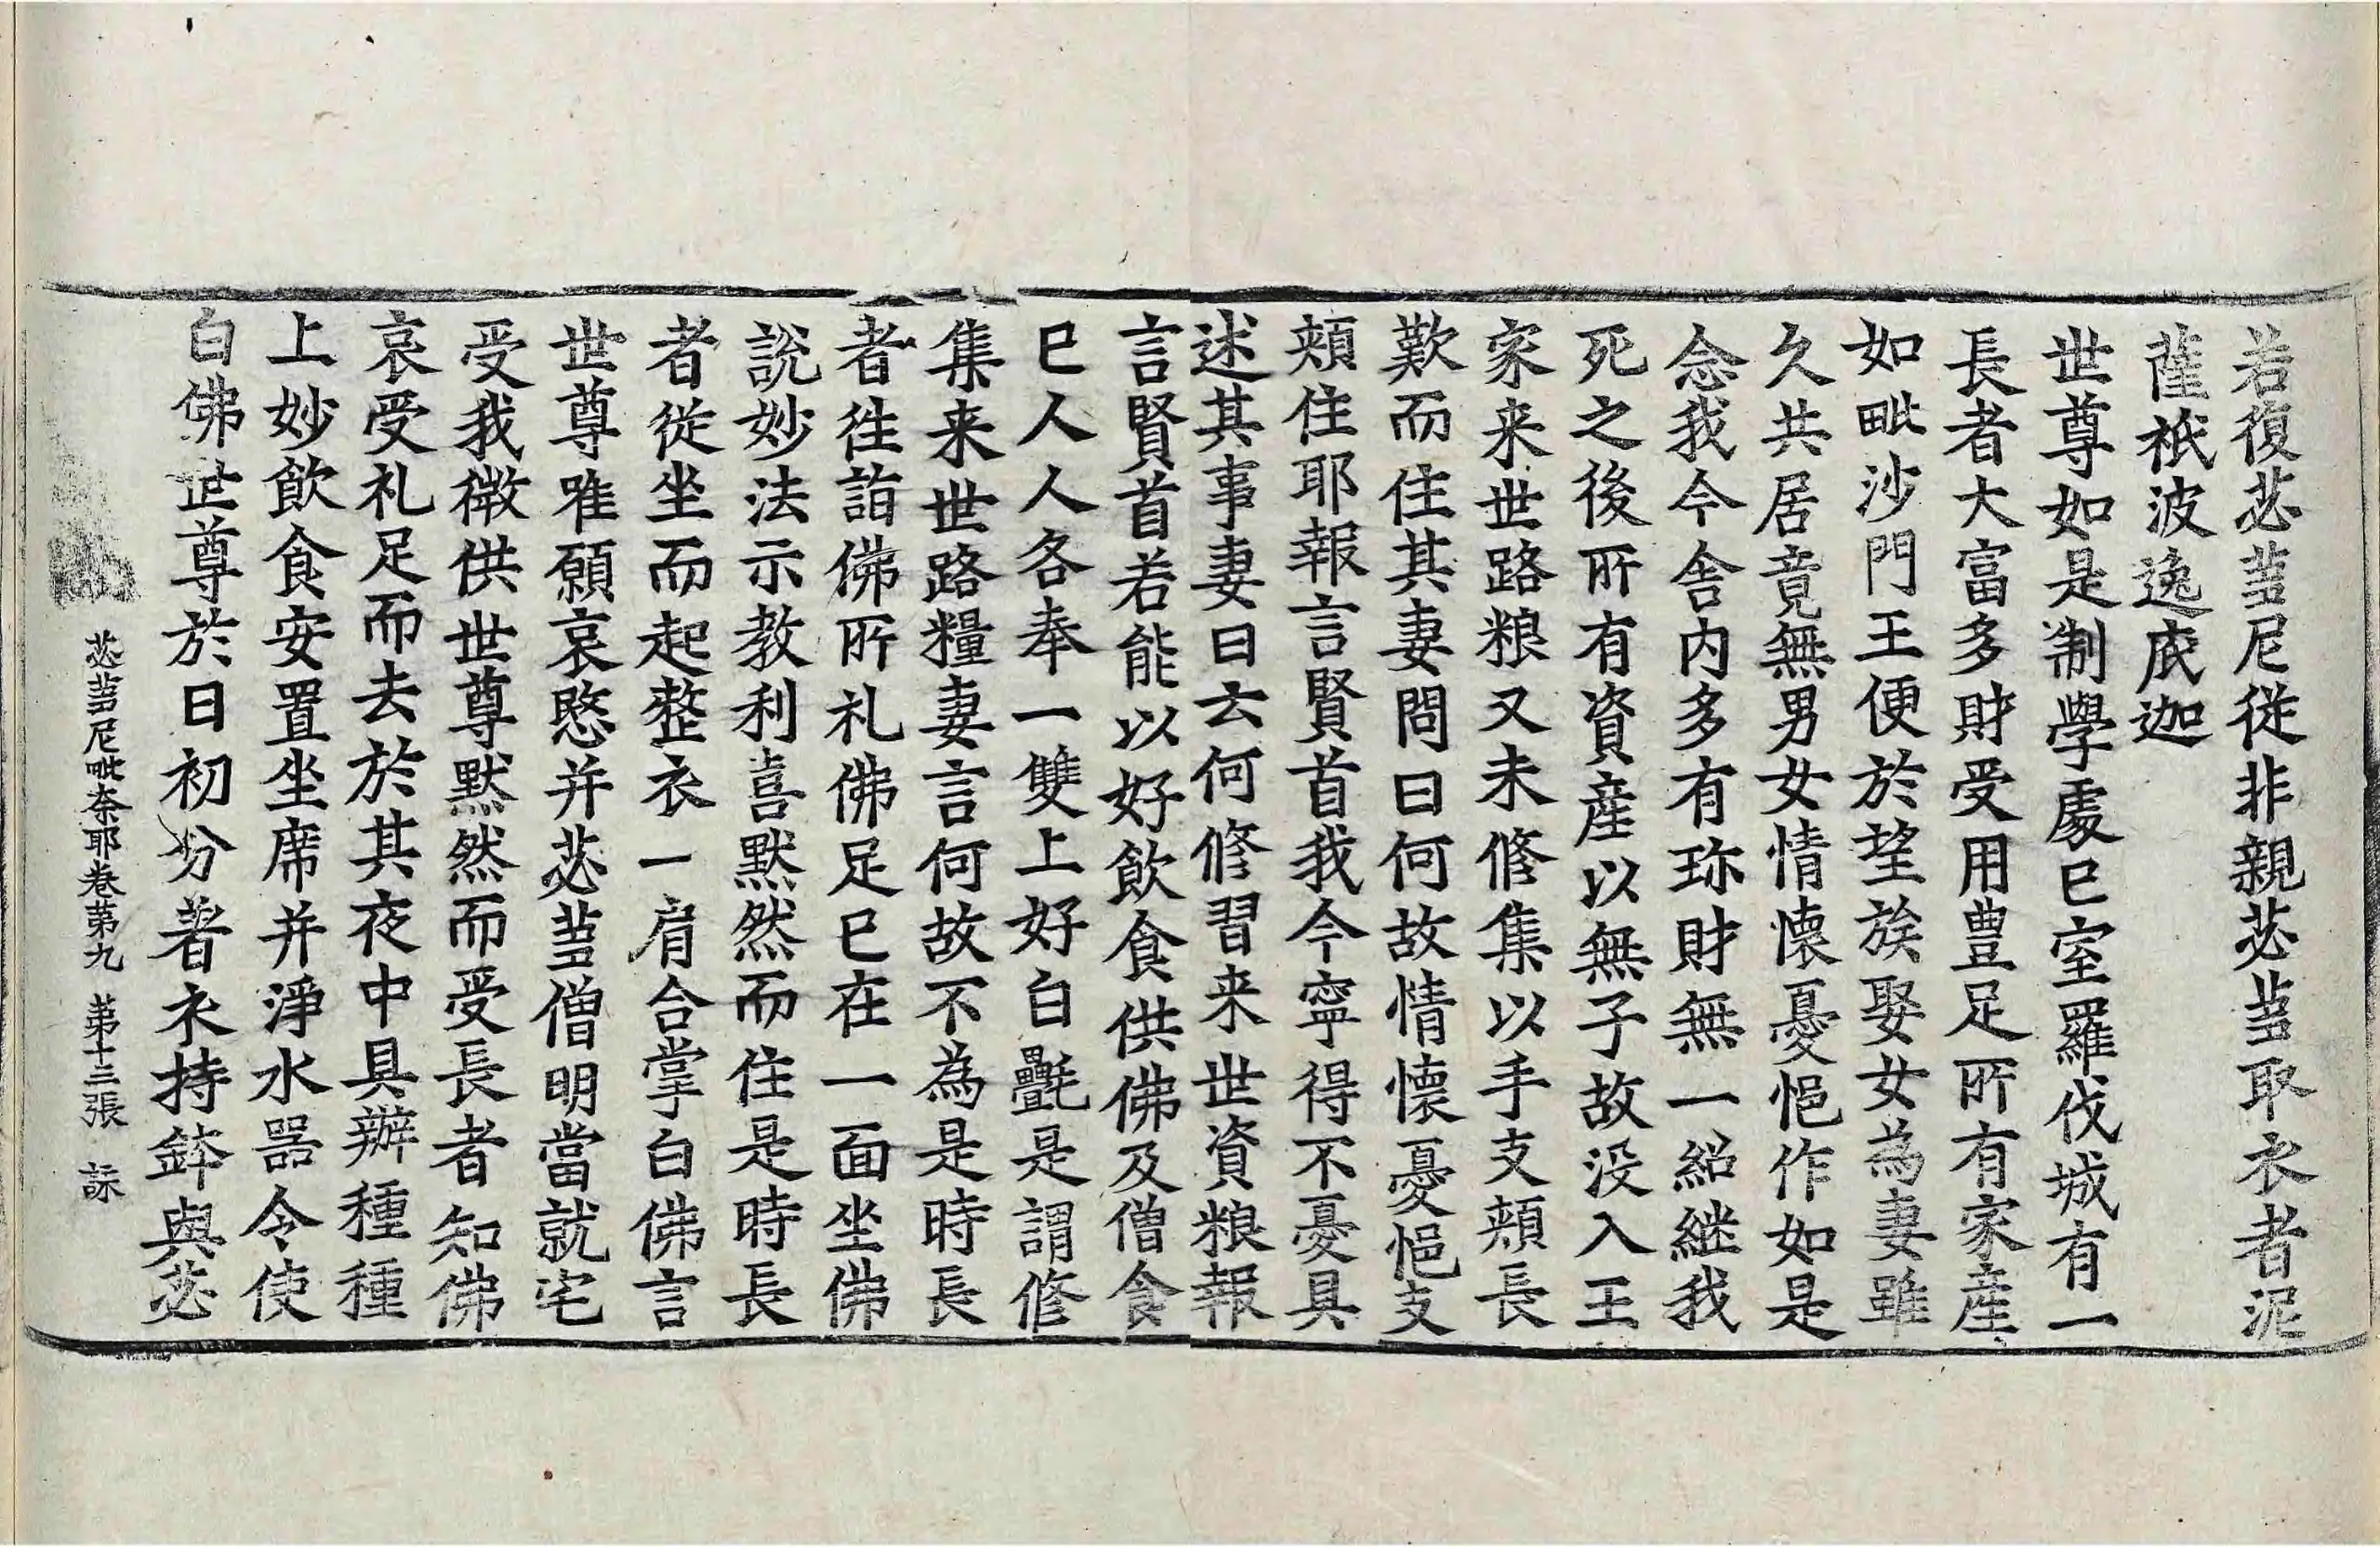 若復苾蒭尼從非親苾蒭取衣者泥
薩祇波逸底迦
世尊如是制學處已室羅伐城有一
長者大富多財受用豊足所有家産
如毗沙門王便於望族娶女為妻雖
久共居竟無男女情懷憂悒作如是
念我今舎内多有珎財無一紹継我
死之後所有資産以無子故没入王
家来世路粮又未修集以手支頬長
歎而住其妻問曰何故情懷憂悒支
頬住耶報言賢首我今寧得不憂具
述其事妻曰云何修習来世資粮報
言賢首若能以好飲食供佛及僧食
已人人各奉一雙上好白氎是謂修
集来世路糧妻言何故不為是時長
者往詣佛所礼佛足已在一面坐佛
說妙法示教利喜黙然而住是時長
者從坐而起整衣一肩合掌白佛言
世尊唯願哀愍并苾蒭僧明當就宅
受我微供世尊黙然而受長者知佛
哀受礼足而去於其夜中具辦種種
上妙飲食安置坐席并淨水器令使
白佛世尊於日初分著衣持鉢與苾
苾蒭尼毗奈耶卷第九　第十三張　詠